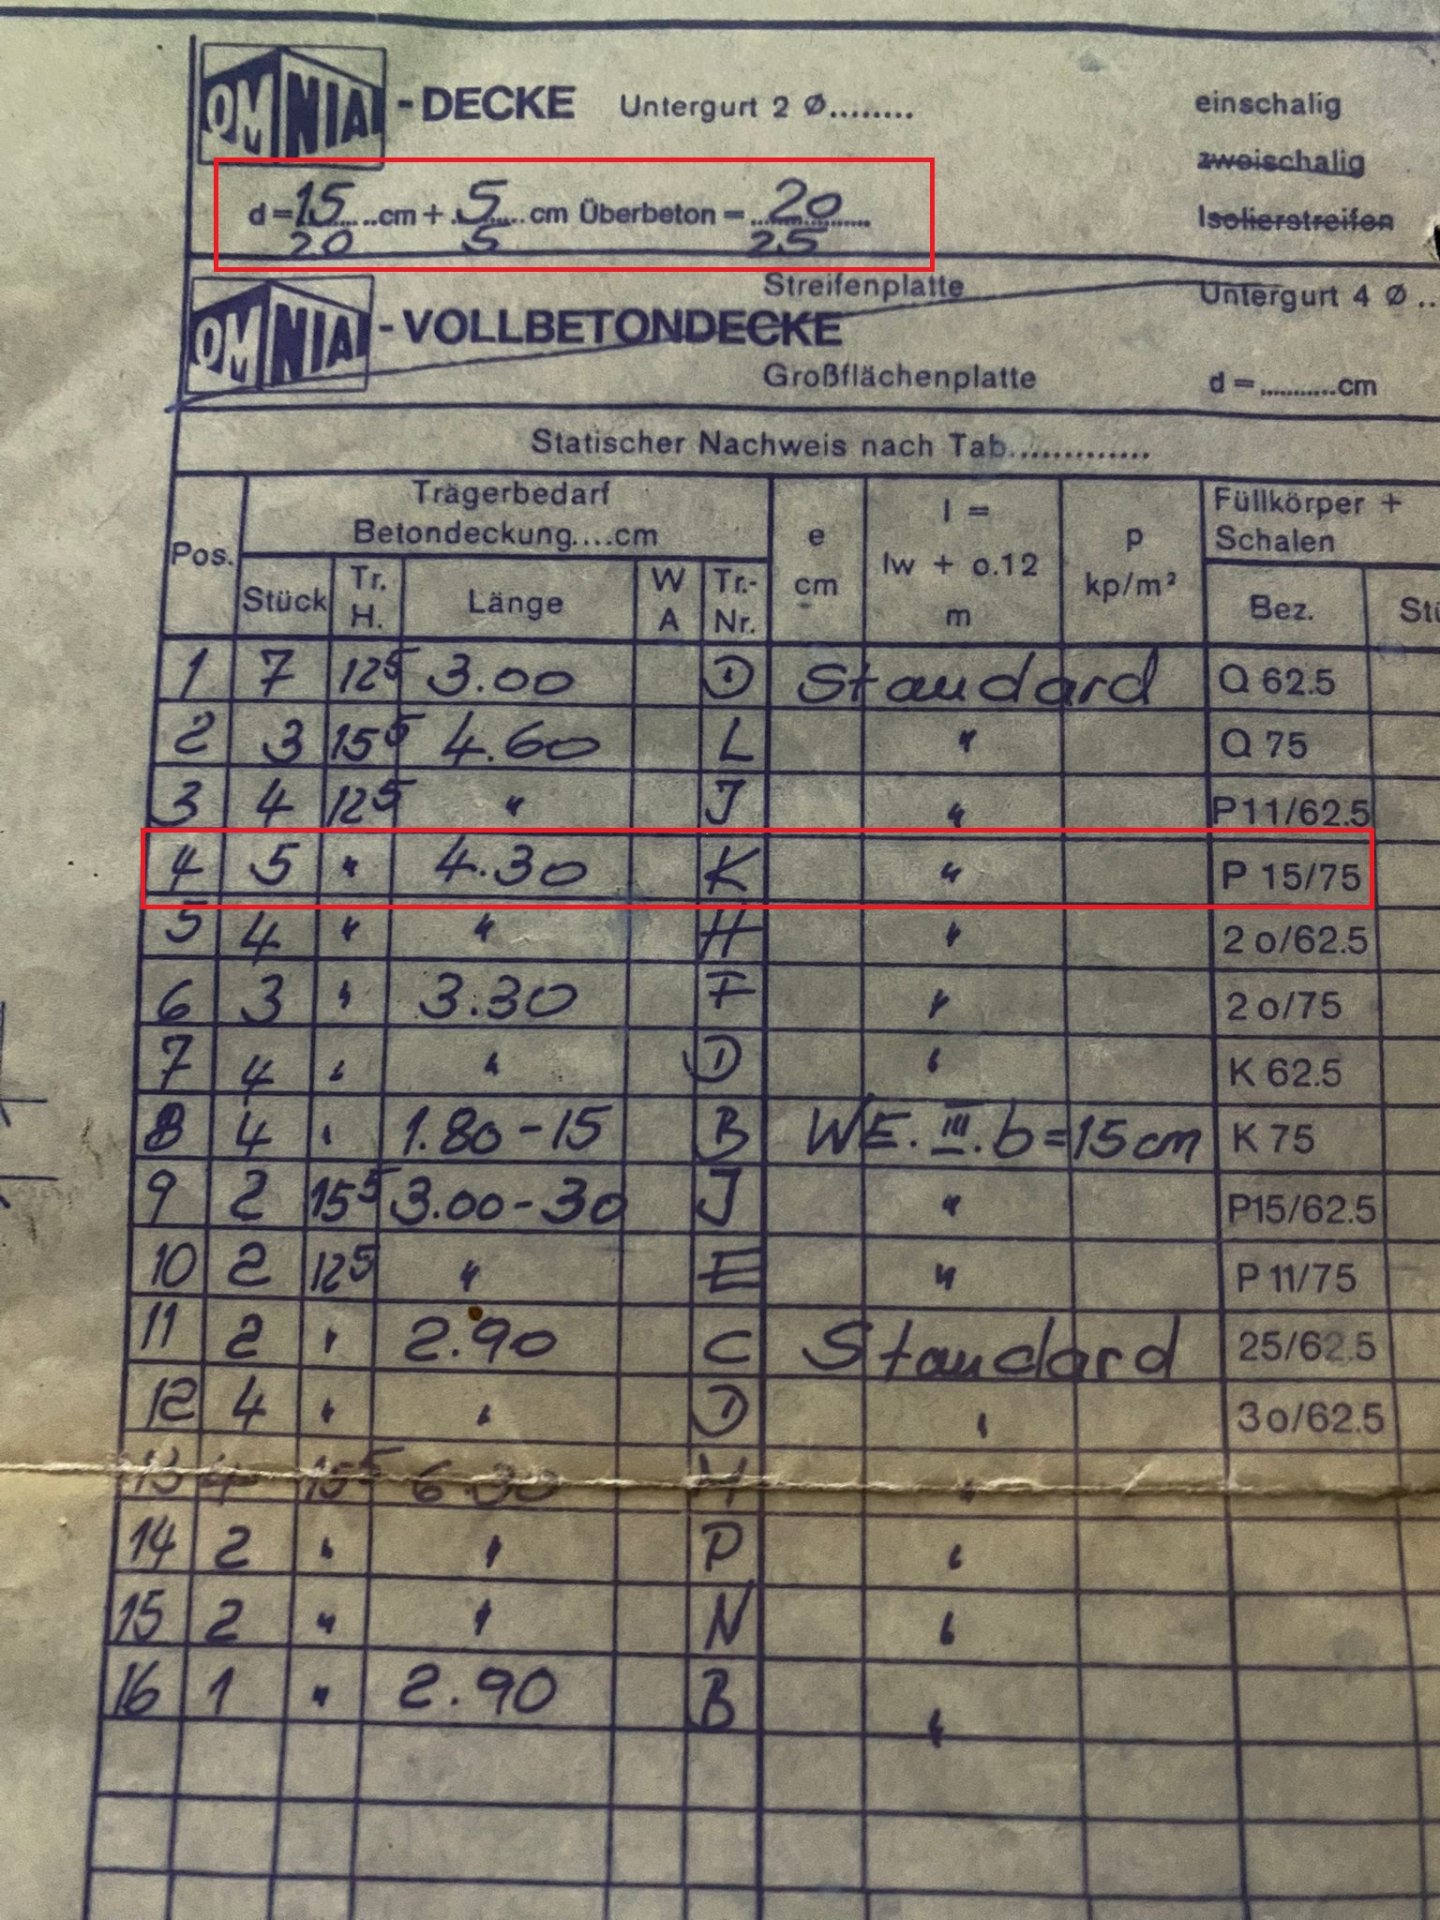 OMNIA -DECKE Untergurt 2 Ø........ einschalig
zweischalig
d=15.....cm + .5..... cm Überbeton = ...20........ Isolierstreifen
20 5 25
Streifenplatte Untergurt 4 Ø ..
OMNIA -VOLLBETONDECKE
Großflächenplatte d = ...........cm
Statischer Nachweis nach Tab..............
Trägerbedarf
Betondeckung....cm
Pos. Stück Tr. H. Länge W A Tr.- Nr. e cm l = lw + o.12 m p kp/m² Füllkörper + Schalen Bez.
1 7 12⁵ 3.00 D Standard Q 62.5
2 3 15⁵ 4.60 L " Q 75
3 4 12⁵ " J " P11/62.5
4 5 " 4.30 K " P 15/75
5 4 " " H " 2o/62.5
6 3 " 3.30 F " 2o/75
7 4 " " D " K 62.5
8 4 " 1.80-15 B WE. III. b=15cm K 75
9 2 15⁵ 3.00-30 J " P15/62.5
10 2 12⁵ " E " P 11/75
11 2 " 2.90 C Standard 25/62.5
12 4 " " D " 3o/62.5
13 4 15⁵ 6.30 "
14 2 " " P "
15 2 " " N "
16 1 " 2.90 B "